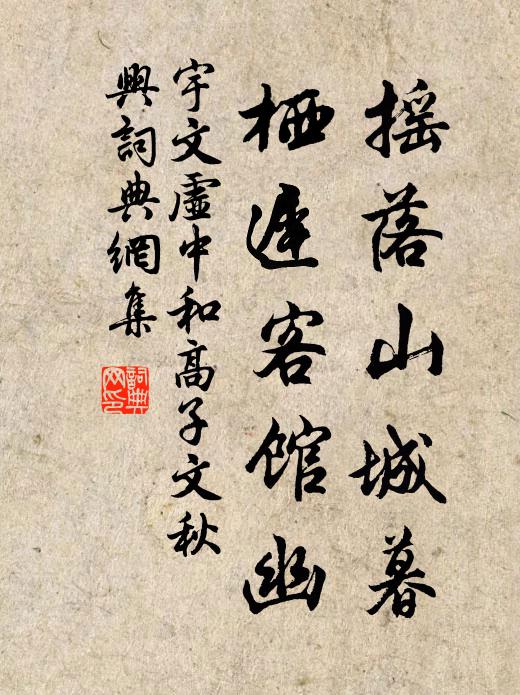 摇落山城暮
栖遲客馆幽
宇文虛中和高子文秋
興詞典網集
詞典
网印